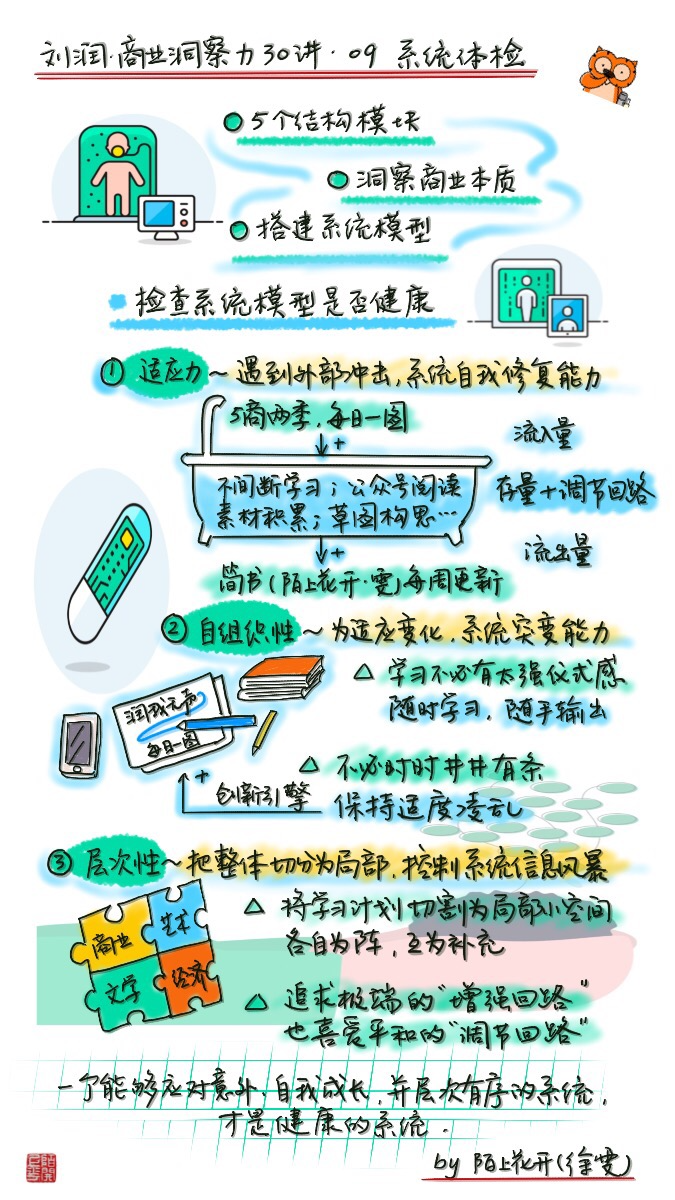 刘润·商业洞察力30讲·09 系统体检
5个结构模块
洞察商业本质
搭建系统模型
检查系统模型是否健康
① 适应力～遇到外部冲击,系统自我修复能力
5商两季,每日一图
+
流入量
不间断学习;公众号阅读
素材积累;草图构思…
存量+调节回路
+
流出量
简书(陌上花开·雯)每周更新
② 自组织性～为适应变化,系统突变能力
△ 学习不必有太强仪式感
随时学习,随手输出
每日一图
△ 不必时时井井有条
保持适度凌乱
+
创新引擎
③ 层次性～把整体切分为局部,控制系统信息风暴
商业
艺术
文学
经济
△ 将学习计划切割为局部小空间
各自为阵,互为补充
△ 追求极端的“增强回路”
也喜爱平和的“调节回路”
一个能够应对意外,自我成长,并层次有序的系统,
才是健康的系统.
by 陌上花开(徐雯)